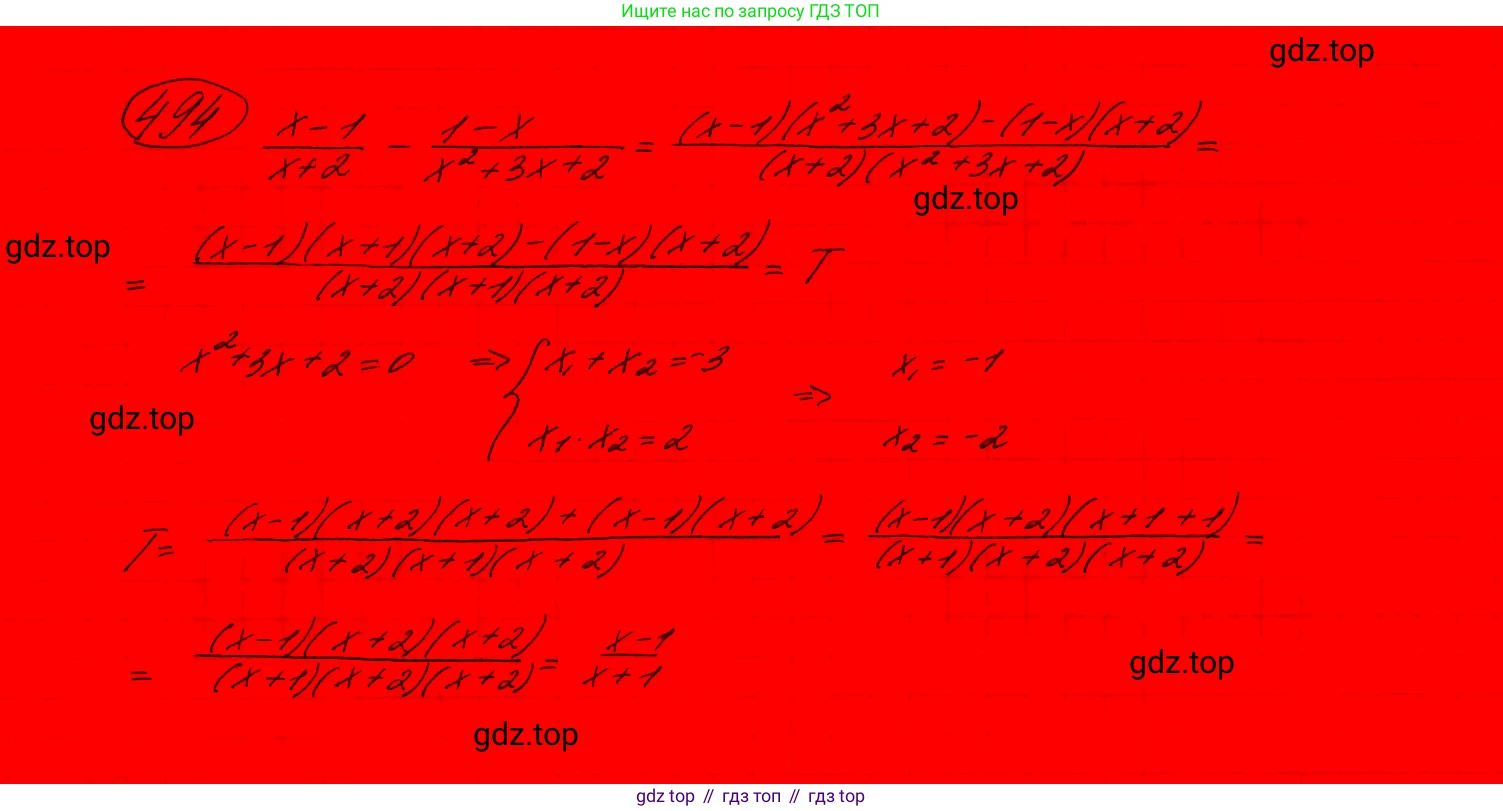 Ищите нас по запросу ГДЗ ТОП
gdz.top
494 (x-1)/(x+2) - (1-x)/(x²+3x+2) = ((x-1)(x²+3x+2)-(1-x)(x+2))/((x+2)(x²+3x+2)) =
gdz.top
gdz.top
= ((x-1)(x+1)(x+2)-(1-x)(x+2))/((x+2)(x+1)(x+2)) = T
x²+3x+2=0 => { x₁+x₂=-3 => x₁=-1
x₁·x₂=2 x₂=-2
gdz.top
T= ((x-1)(x+2)(x+2)+(x-1)(x+2))/((x+2)(x+1)(x+2)) = ((x-1)(x+2)(x+1+1))/((x+1)(x+2)(x+2)) =
= ((x-1)(x+2)(x+2))/((x+1)(x+2)(x+2)) = (x-1)/(x+1)
gdz.top
gdz.top
gdz top // гдз топ // гдз top